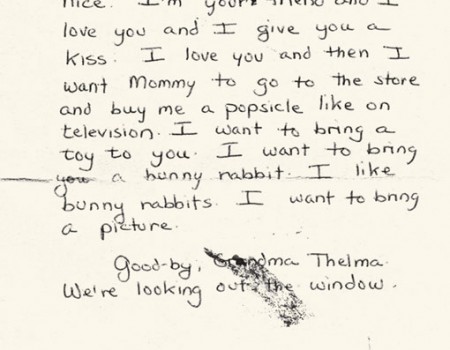 nice. I'm your friend and I
love you and I give you a
kiss. I love you and then I
want Mommy to go to the store
and buy me a popsicle like on
television. I want to bring a
toy to you. I want to bring
you a bunny rabbit. I like
bunny rabbits. I want to bring
a picture.
Good-by, Grandma Thelma.
We're looking out the window.